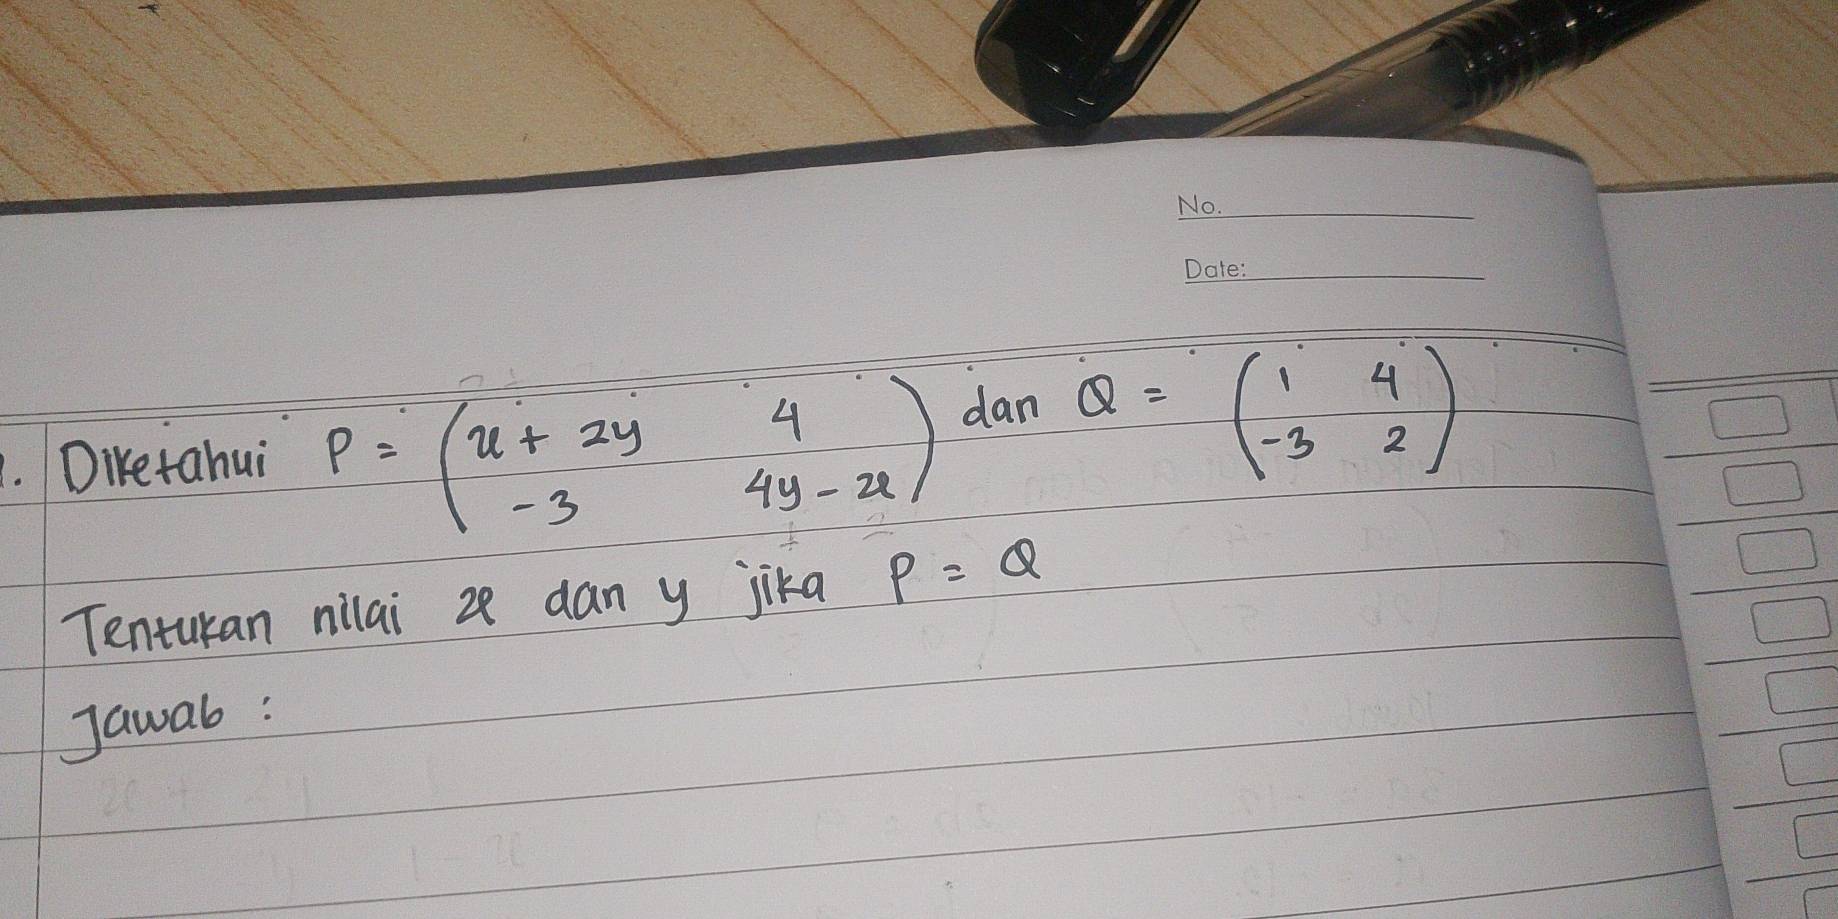 No.
Date:
. Diketahui P = (x + 2y 4 dan Q = (1 4
-3 4y - x) -3 2)
Tentukan nilai x dan y jika P = Q
Jawab :